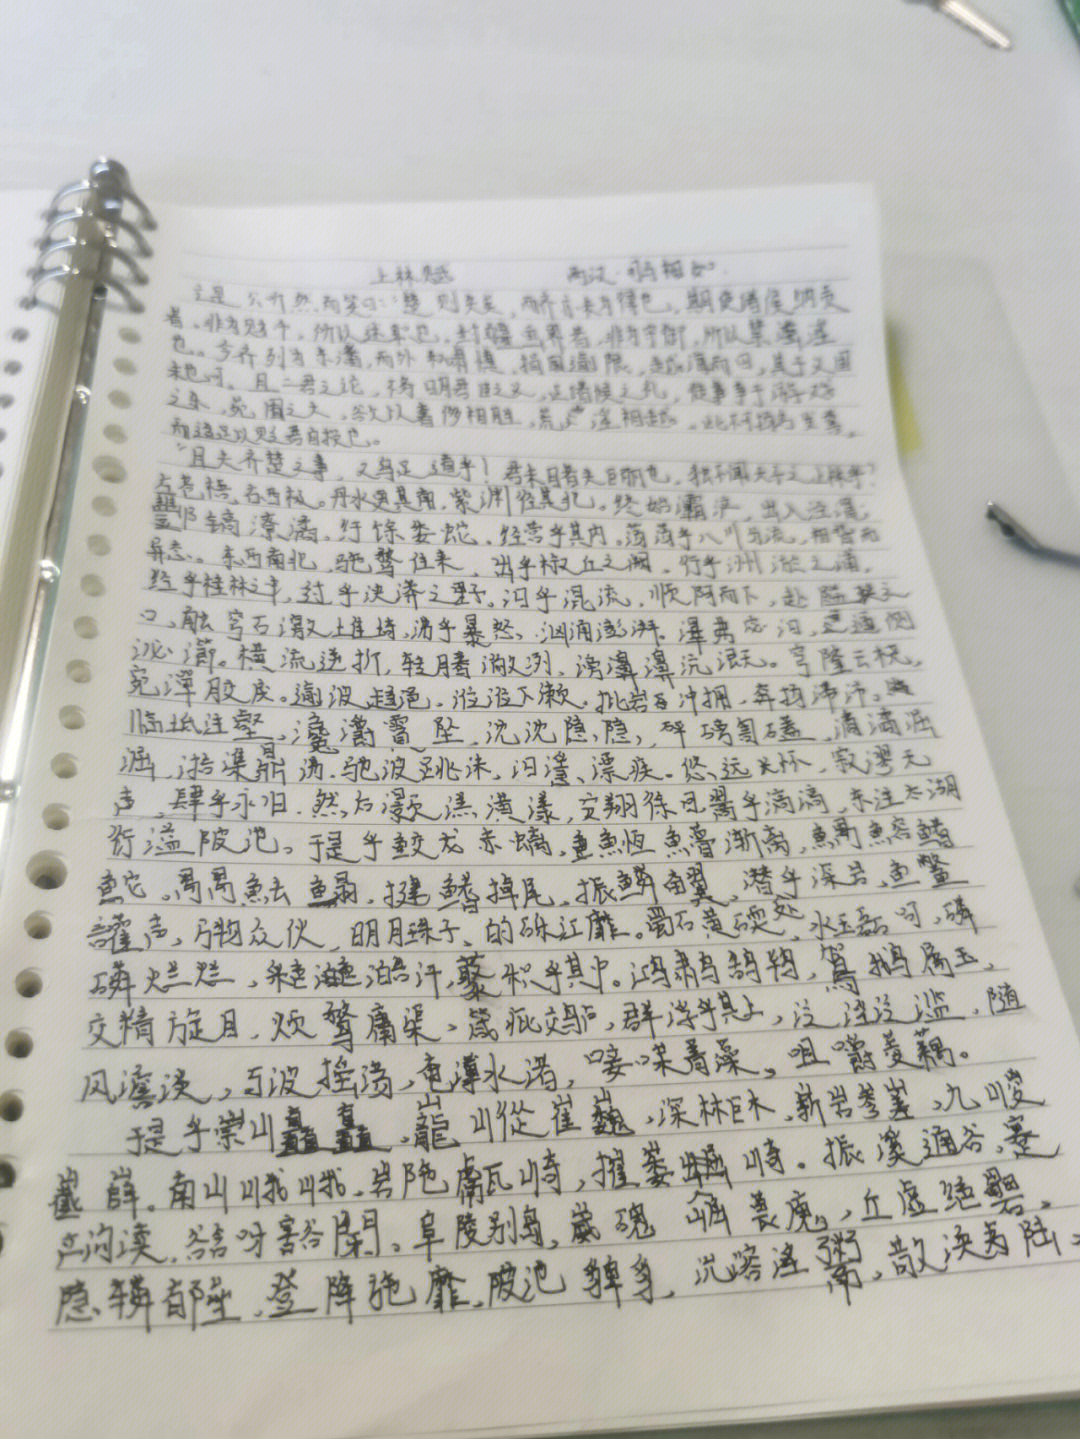 上林赋 西汉·司马相如
亡是公听然而笑曰："楚则失矣，而齐亦未为得也。夫使诸侯纳贡
者，非为财币，所以述职也。封疆画界者，非为守御，所以禁淫
也。今齐列为东藩，而外私肃慎，捐国逾限，越海而田，其于义固
未可。且二君之论，不务明君臣之义，正诸侯之礼，徒事争于游戏
之乐，苑囿之大，欲以奢侈相胜，荒淫相越，此不可以扬名发誉，
而适足以贬君自损也。
"且夫齐楚之事，又乌足道乎！君未睹夫巨丽也，独不闻天子之上林乎？
左苍梧，右西极。丹水更其南，紫渊径其北。终始灞浐，出入泾渭；
酆镐潦潏，纡馀委蛇，经营乎其内。荡荡乎八川分流，相背而
异态。东西南北，驰骛往来，出乎椒丘之阙，行乎洲淤之浦，
经乎桂林之中，过乎泱漭之野。汩乎混流，顺阿而下，赴隘狭之
口，触穹石，激堆埼，沸乎暴怒，汹涌澎湃。滭弗宓汩，逼侧
泌瀄。横流逆折，转腾潎洌，滂濞沆溉。穹隆云桡，
宛潬胶戾。逾波趋浥，涖涖下濑。批岩冲拥，奔扬滞沛。
临坻注壑，瀺灂霣坠，沈沈隐隐，砰磅訇礚，潏潏淈
淈，湁潗鼎沸。驰波跳沫，汩㴔漂疾。悠远长怀，寂漻无
声，肆乎永归。然后灏溔潢漾，安翔徐回，翯乎滈滈，东注太湖，
衍溢陂池。于是乎蛟龙赤螭，䱭䲛渐离，鰅鰫鳍
鮀，禺禺魼鳎，揵鳍掉尾，振鳞奋翼，潜乎深岩，鱼鳖
讙声，万物众伙。明月珠子，的皪江靡。蜀石黄碝，水玉磊砢，磷
磷烂烂，采色澔汗，藂积乎其中。鸿鹔鹄鸨，鴐鹅属玉，
交精旋目，烦鹜庸渠，箴疵䴔卢，群浮乎其上，泛淫泛滥，随
风澹淡，与波摇荡，奄薄水渚，唼喋菁藻，咀嚼菱藕。
于是乎崇山矗矗，巃嵸崔巍，深林巨木，崭岩参嵳，九嵕
巀嶭。南山峨峨，岩陁甗崎，摧崣崛崎。振溪通谷，蹇
产沟渎，谽呀豁閕。阜陵别岛，崴磈嵔廆，丘虚堀礨，
隐辚郁垒，登降施靡，陂池貏豸，沇溶淫鬻，散涣夷陆，